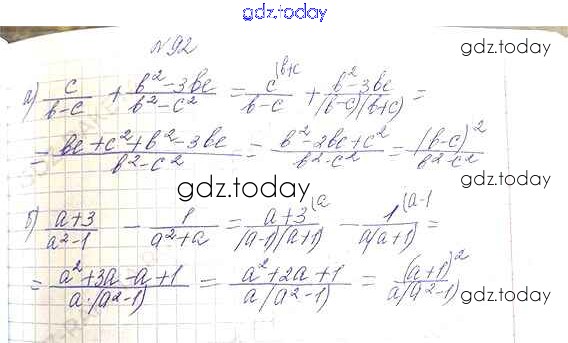 gdz.today
№92
gdz.today
а) c/(b-c) + (b²-3bc)/(b²-c²) = c^{|b+c}/(b-c) + (b²-3bc)/((b-c)(b+c)) =
= (bc+c²+b²-3bc)/(b²-c²) = (b²-2bc+c²)/(b²-c²) = (b-c)²/(b²-c²)
gdz.today
gdz.today
б) (a+3)/(a²-1) - 1/(a²+a) = (a+3)^{|a}/((a-1)(a+1)) - 1^{|a-1}/(a(a+1)) =
gdz.today
= (a²+3a-a+1)/(a·(a²-1)) = (a²+2a+1)/(a(a²-1)) = (a+1)²/(a(a²-1))
gdz.today